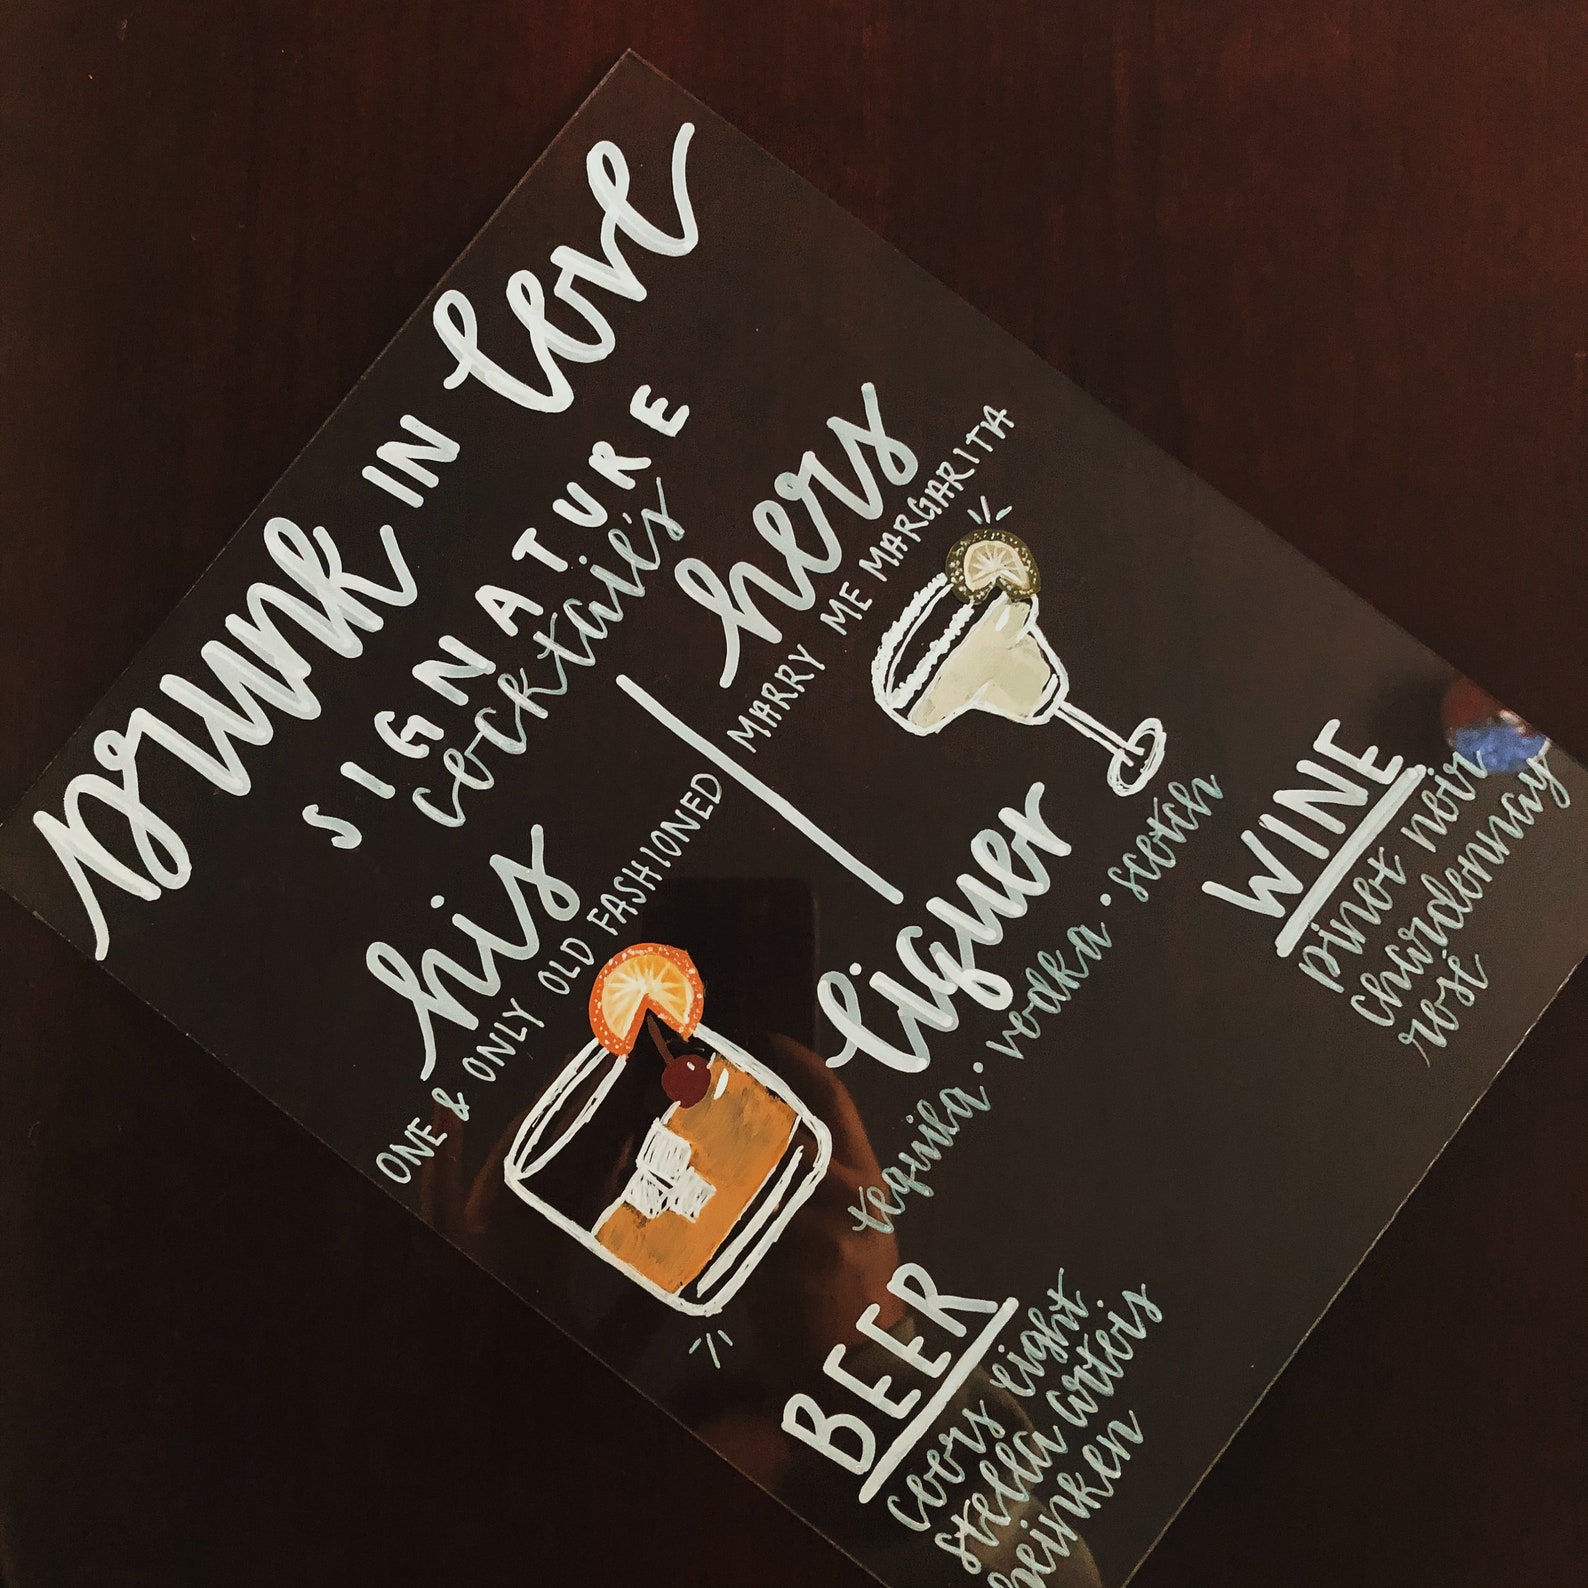 Drunk IN love
SIGNATURE
cocktail's
his
ONE & ONLY OLD FASHIONED
hers
MARRY ME MARGARITA
liquer
tequila • vodka • scotch
BEER
coors light
stella artois
heinken
WINE
pinot noir
chardonnay
rosé